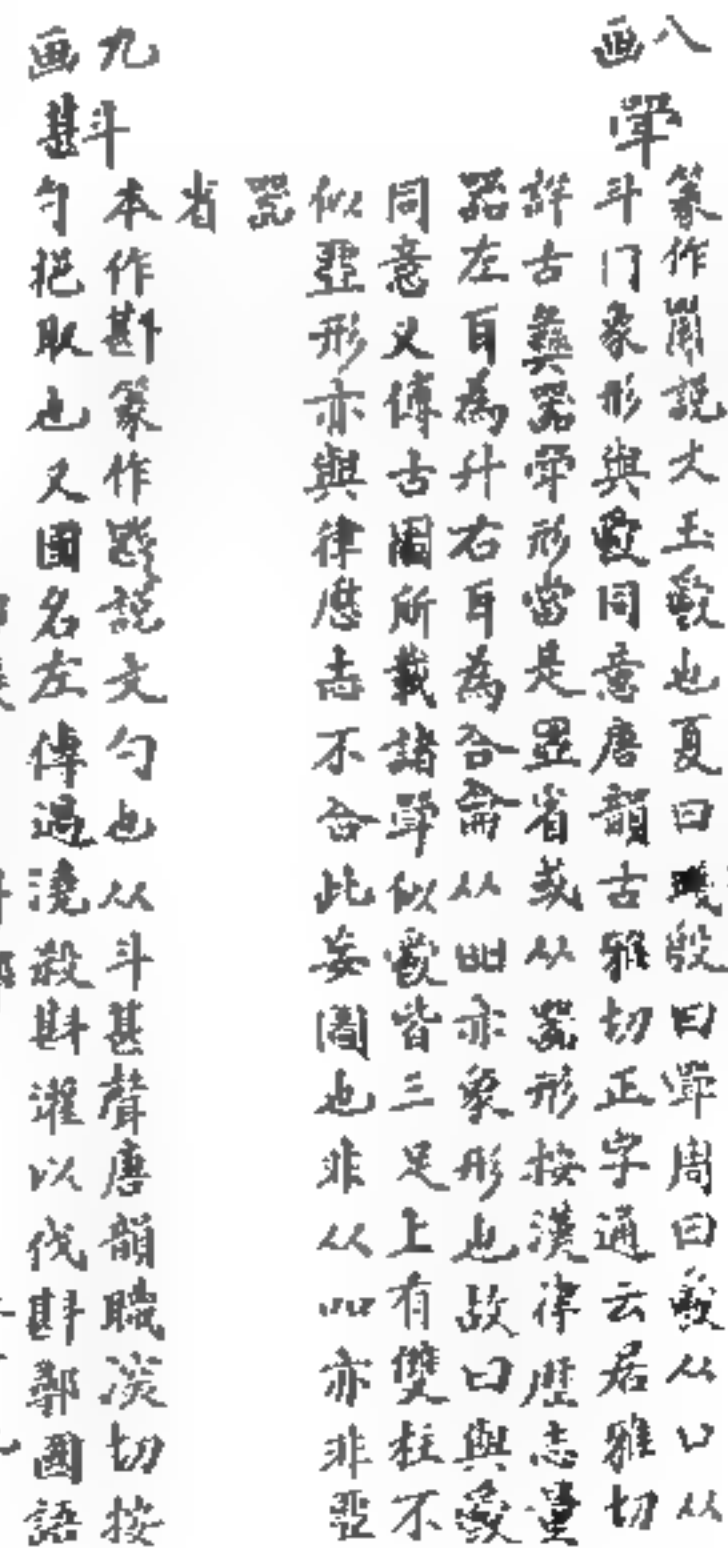 八画
斝
篆作斝説文玉爵也夏曰琖殷曰斝周曰爵从吅从
斗冂象形與爵同意唐韻古雅切正字通云居雅切
詳古彝器斝形當是斝省或从器形按漢律歷志量
器左耳為升右耳為合龠从吅亦象形也故曰與爵
同意又傳古圖所載諸斝似爵皆三足上有雙柱不
似斝形亦與律歷志不合此妄圖也非从吅亦非斝
器
省
九画
斗
斟
本作斟篆作斟説文勺也从斗甚聲唐韻職深切按
勺挹取也又國名左傳過澆殺斟灌以伐斟鄩國語